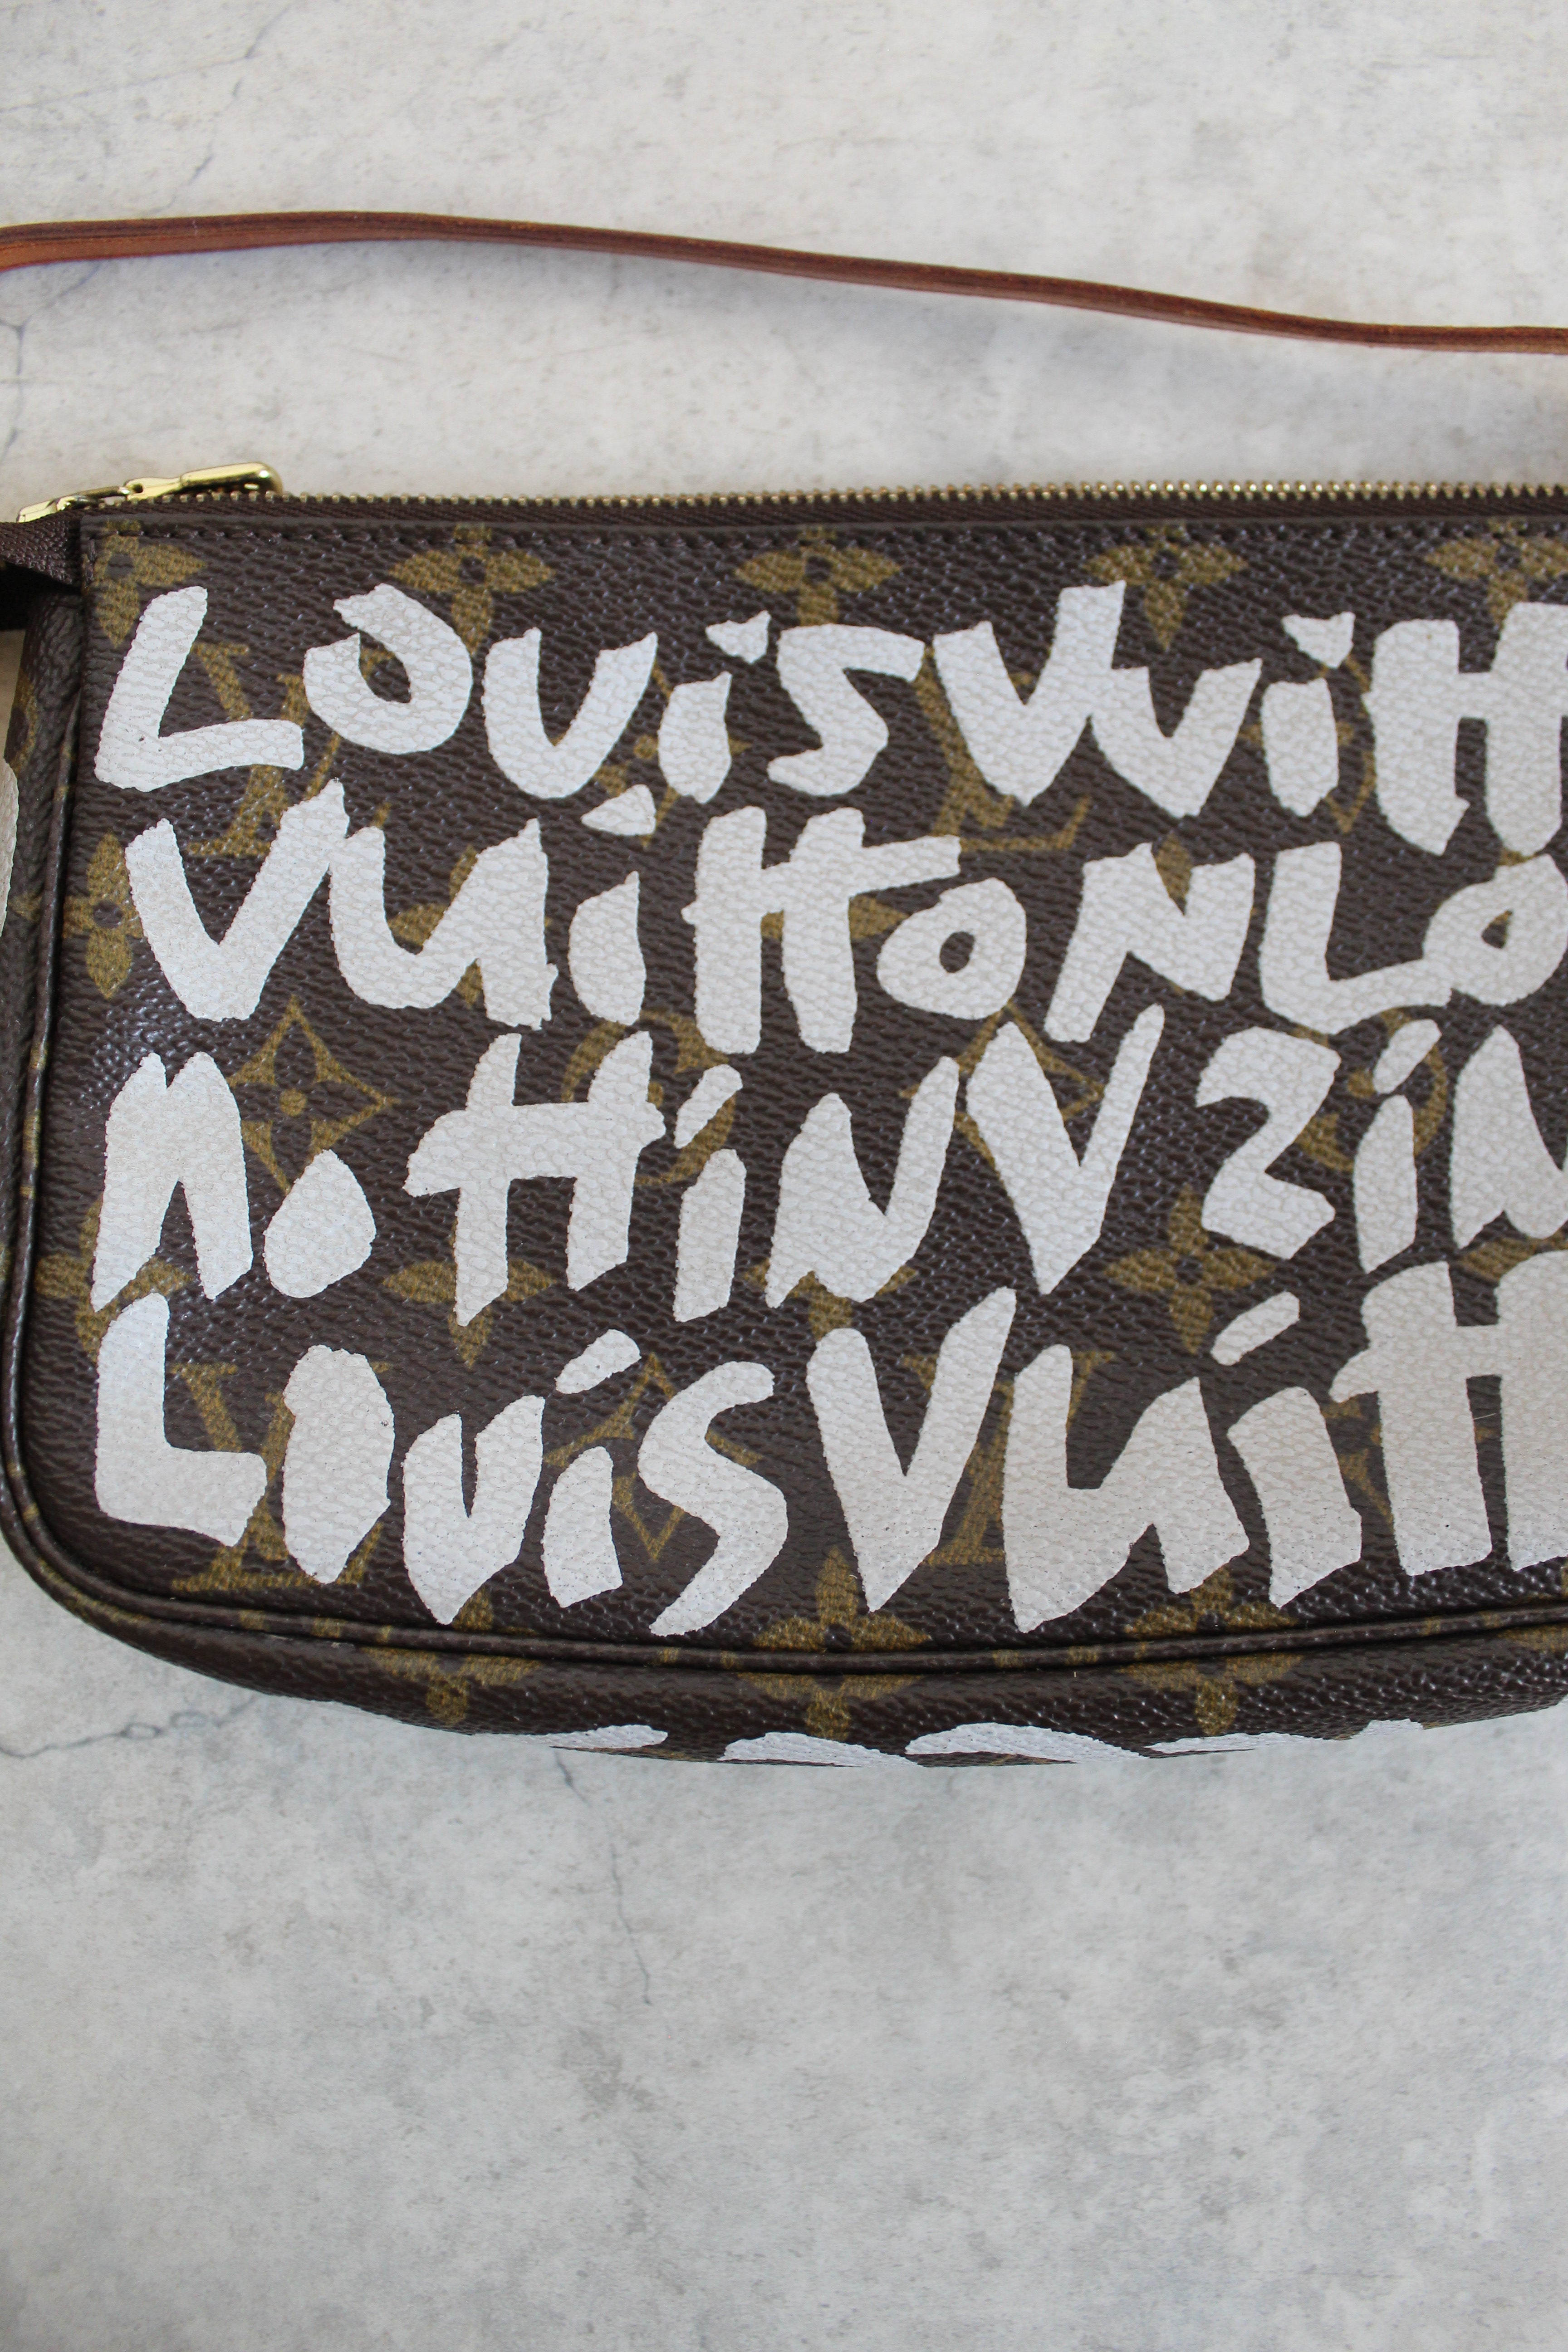 LouisVuitt
VuittonLo
NottiNVZiN
LouisVuitt